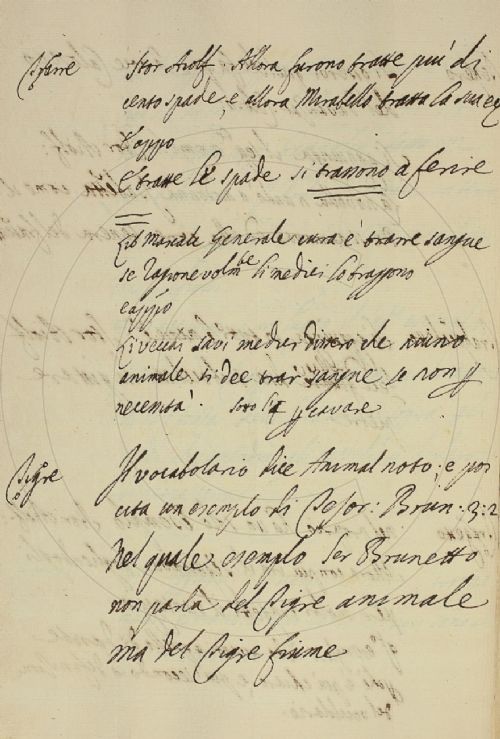 Stor Aiolf. Allora furono tratte piu di
cento spade, e allora Mirabello tratta la sua
E appo
E tratte le spade si trassono a ferire
Lib Mascalc Generale cura è trarre sangue
se ragionevolm.te li medici lo traggono
e appo
Li vecchi savi medici dissero che a niuno
animale si dee trar sangue se non p
necessità. sotto la p cavare
Tigre Il vocabolario dice Animal noto; e poi
cita un esempio di Tesor: Brun. 3:2
Nel quale esempio Ser Brunetto
non parla del Tigre animale
ma del Tigre fiume